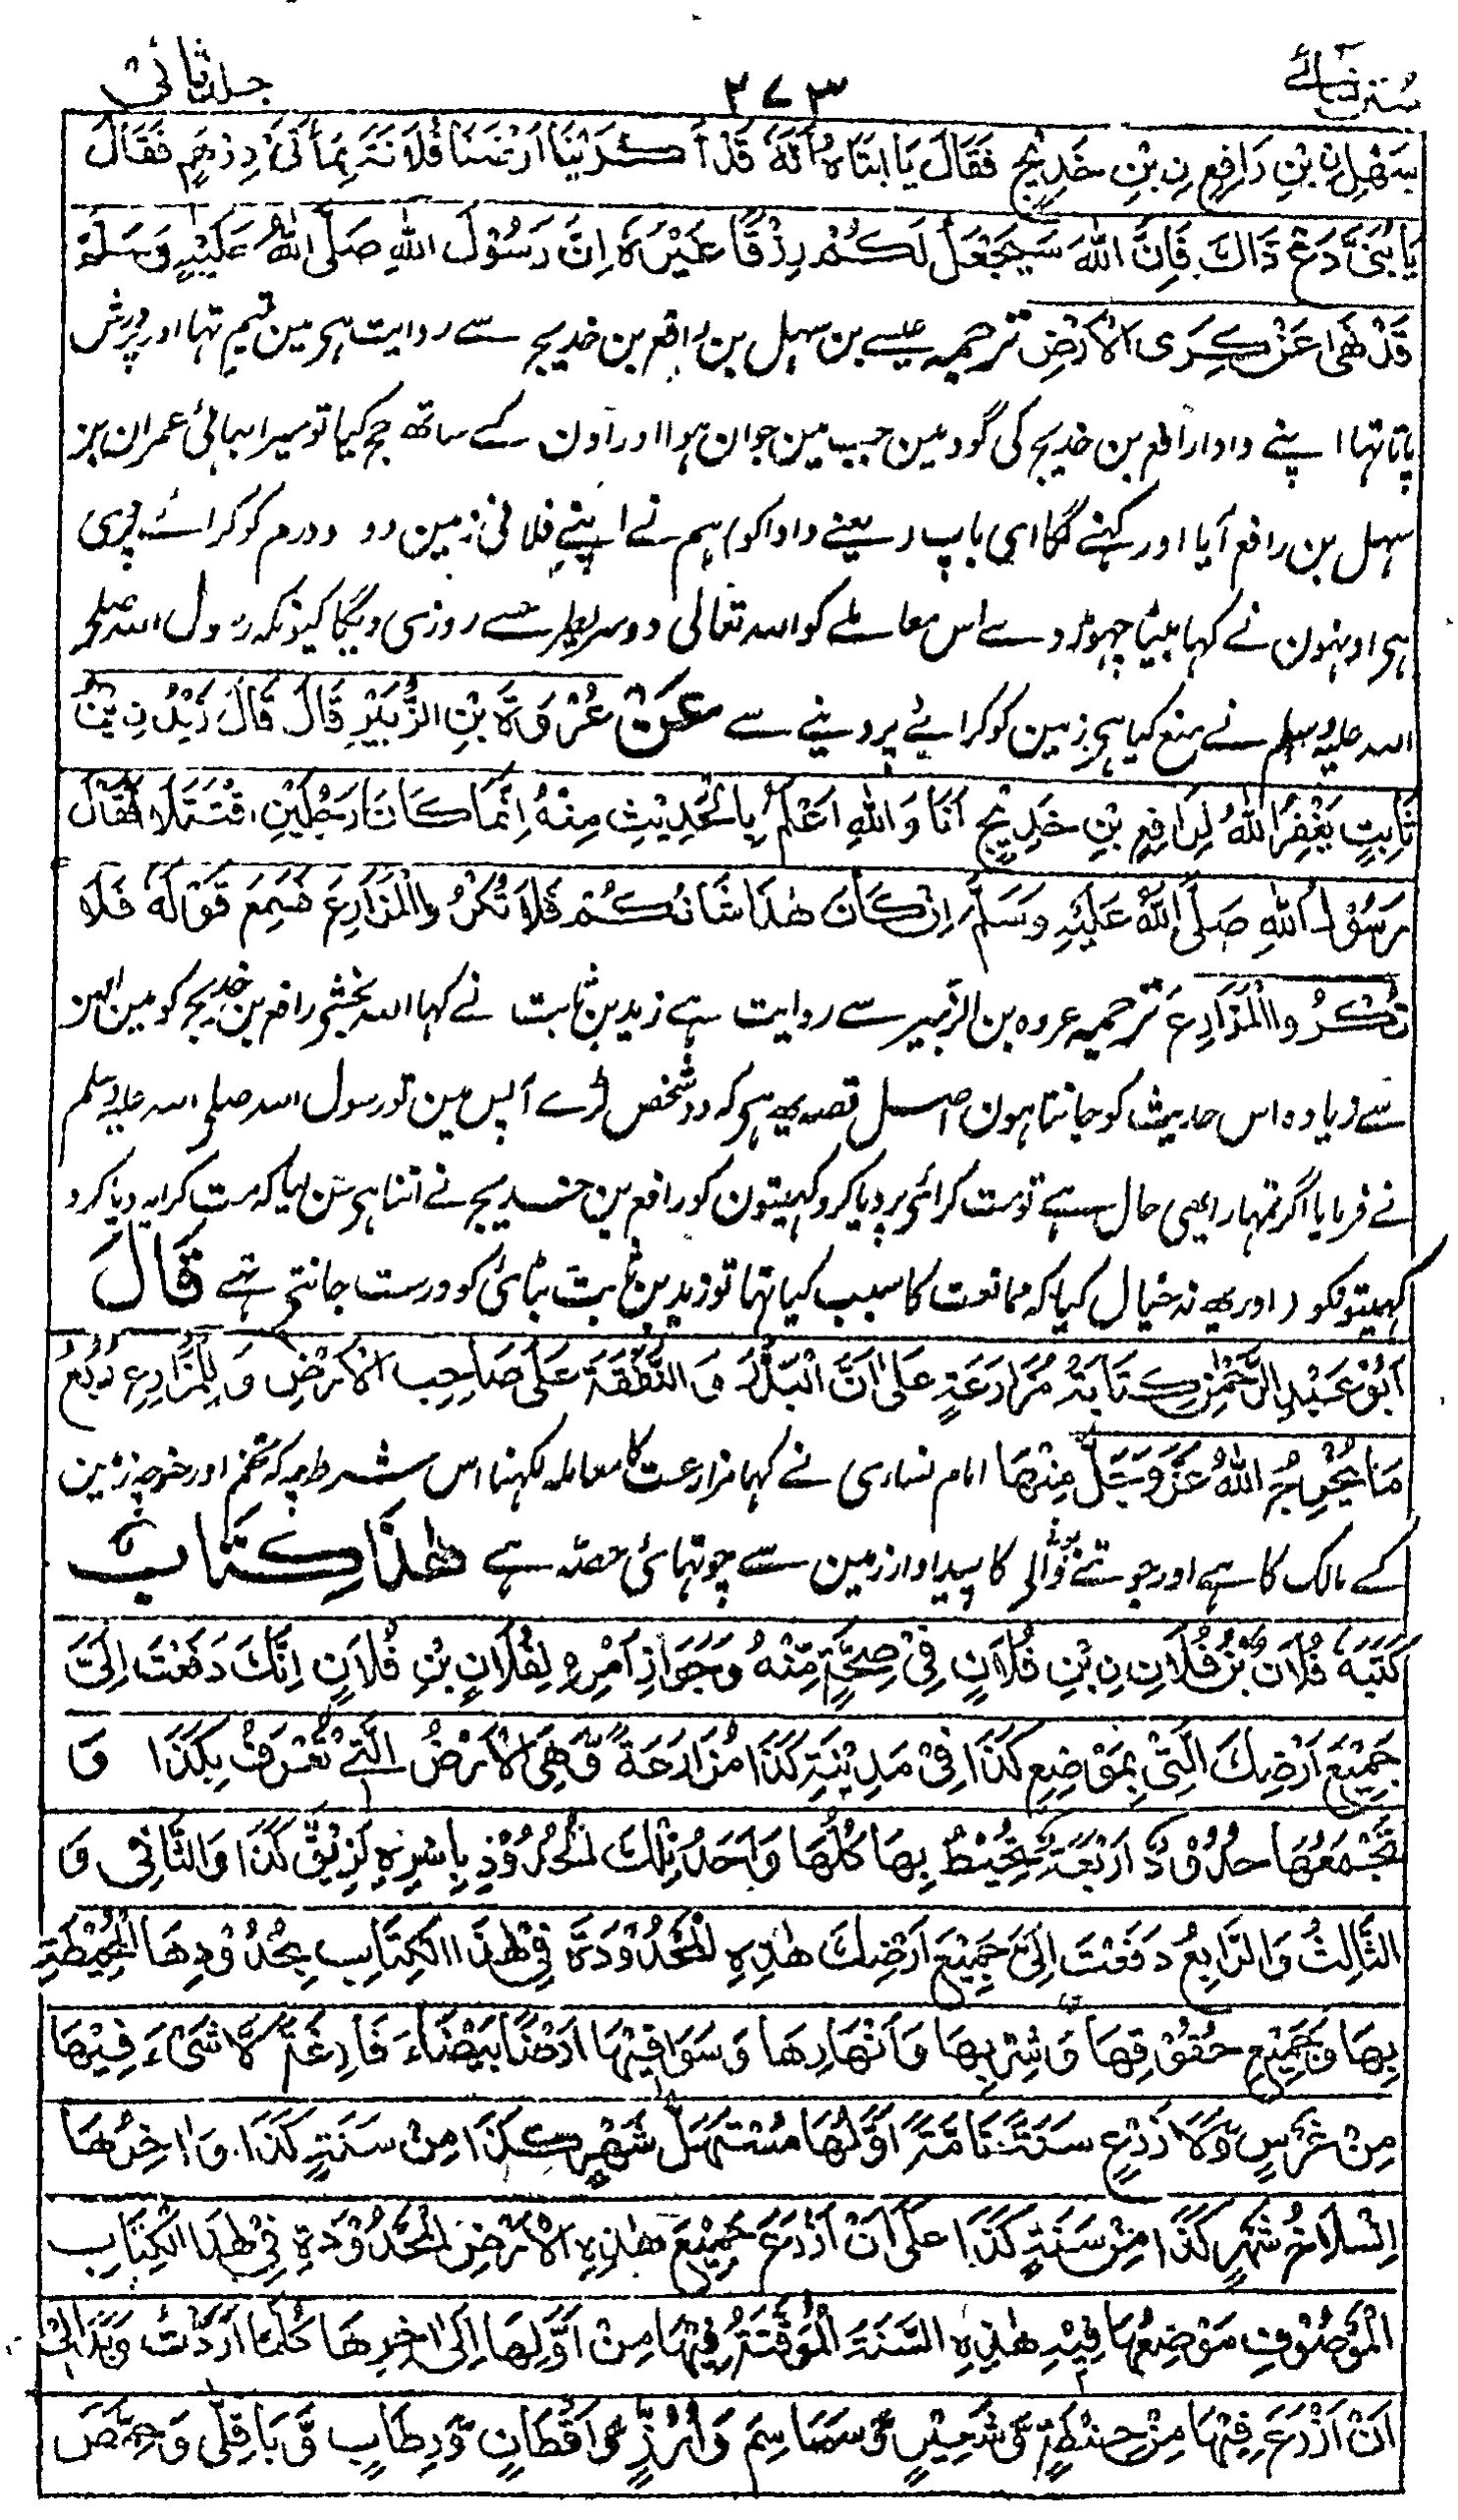 سنن نسائے
۲۷۳
جلد ثانی
سَهْلِ نِ بْنِ رَافِعِ نِ بْنِ خَدِيْجٍ فَقَالَ يَا اَبَتَاهُ اَنَّهُ قَدْ اَكْرَيْنَا اَرْضَنَا فُلَانَةَ بِمِأَتَىْ دِرْهَمٍ فَقَالَ
يَا بُنَىَّ دَعْ ذَاكَ فَاِنَّ اللّٰهَ سَيَجْعَلُ لَكُمْ رِزْقًا غَيْرَهُ اِنَّ رَسُوْلَ اللّٰهِ صَلَّى اللّٰهُ عَلَيْهِ وَسَلَّمَ
قَدْ نَهٰى عَنْ كِرَى الْاَرْضِ ترجمہ عیسے بن سہل بن رافع بن خدیج سے روایت ہی مین یتیم تہا اور پرورش
پاتا تہا اپنے دادا رافع بن خدیج کی گود مین جب مین جوان ہوا اور اون کے ساتھ حج کیا تو میرا بہائی عمران بن
سہل بن رافع آیا اور کہنے لگا ای باپ (یعنے دادا کو) ہم نے اپنے فلانی زمین دو دو درم کو کرائے پر دی
ہی اونہون نے کہا بیٹا چہوڑ دے اس معاملے کو اللہ تعالی دوسریطرحسے روزی دیگا کیونکہ رسول اللہ صلے
اللہ علیہ وسلم نے منع کیا ہی زمین کو کرائے پر دینے سے عَنْ عُرْوَةَ بْنِ الزُّبَيْرِ قَالَ قَالَ زَيْدُ نِ بْنُ
ثَابِتٍ يَغْفِرُ اللّٰهُ لِرَافِعِ بْنِ خَدِيْجٍ اَنَا وَاللّٰهِ اَعْلَمُ بِالْحَدِيْثِ مِنْهُ اِنَّمَا كَانَا رَجُلَيْنِ اقْتَتَلَا فَقَالَ
رَسُوْلُ اللّٰهِ صَلَّى اللّٰهُ عَلَيْهِ وَسَلَّمَ اِنْ كَانَ هٰذَا شَانُكُمْ فَلَا تُكْرُوا الْمَزَارِعَ فَسَمِعَ قَوْلَهُ فَلَا
تُكْرُوا الْمَزَارِعَ ترجمہ عروہ بن الزبیر سے روایت ہے زید بن ثابت نے کہا اللہ بخشی رافع بن خدیج کو مین انسے
سے زیادہ اس حدیث کو جانتا ہون اصل قصہ یہ ہی کہ دو شخص لڑے آپس مین تو رسول اللہ صلی اللہ علیہ وسلم
نے فرمایا اگر تمہارا یہی حال ہے تو مت کرائی پر دیا کرو کہیتون کو رافع بن خدیج نے اتنا ہی سن لیا کہ مت کرایہ دیا کرو
کہیتونکو (اور یہ نہ خیال کیا کہ ممانعت کا سبب کیا تہا تو زید بن ثابت بٹائی کو درست جانتی تہے قَالَ
اَبُوْ عَبْدِ الرَّحْمٰنِ كِتَابَةُ مُزَارَعَةٍ عَلٰى اَنَّ الْبَذْرَ وَ النَّفَقَةَ عَلٰى صَاحِبِ الْاَرْضِ وَ لِلْمُزَارِعِ رُبُعُ
مَا يُخْرِجُ اللّٰهُ عَزَّوَجَلَّ مِنْهَا امام نسائی نے کہا مزارعت کا معاملہ لکہنا اس شرط پر کہ تخم اور خرچ زمین
کے مالک کا ہے اور جوتنے والی کا پیداوار زمین سے چوتہائی حصہ ہے هٰذَا كِتَابٌ
كَتَبَهُ فُلَانُ بْنُ فُلَانِ نِ بْنِ فُلَانٍ فِىْ صِحَّةٍ مِّنْهُ وَجَوَازِ اَمْرٍ لِفُلَانِ بْنِ فُلَانٍ اِنَّكَ دَفَعْتَ اِلَىَّ
جَمِيْعَ اَرْضِكَ الَّتِىْ بِمَوْضِعِ كَذَا فِىْ مَدِيْنَةِ كَذَا مُزَارَعَةً وَّهِىَ الْاَرْضُ الَّتِىْ تُعْرَفُ بِكَذَا وَ
تَجْمَعُهَا حُدُوْدٌ اَرْبَعَةٌ يُحِيْطُ بِهَا كُلِّهَا وَاَحَدُ تِلْكَ الْحُدُوْدِ بِاَسْرِهٖ لَزِيْقُ كَذَا وَالثَّانِىْ وَ
الثَّالِثُ وَالرَّابِعُ دَفَعْتَ اِلَىَّ جَمِيْعَ اَرْضِكَ هٰذِهِ الْمَحْدُوْدَةِ فِىْ هٰذَا الْكِتَابِ بِحُدُوْدِهَا الْمُحِيْطَةِ
بِهَا وَجَمِيْعِ حُقُوْقِهَا وَشِرْبِهَا وَاَنْهَارِهَا وَسَوَاقِيْهَا اَرْضًا بَيْضَاءَ فَارِغَةً لَّا شَىْءَ فِيْهَا
مِنْ غَرْسٍ وَّلَا زَرْعٍ سَنَةً تَامَّةً اَوَّلُهَا مُسْتَهَلَّ شَهْرِ كَذَا مِنْ سَنَةِ كَذَا وَاٰخِرُهَا
اِنْسِلَاخُ شَهْرِ كَذَا مِنْ سَنَةِ كَذَا عَلٰى اَنْ اَزْرَعَ جَمِيْعَ هٰذِهِ الْاَرْضِ الْمَحْدُوْدَةِ فِىْ هٰذَا الْكِتَابِ
الْمَوْصُوْفِ مَوْضِعُهَا فِيْهِ هٰذِهِ السَّنَةَ الْمُوَقَّتَةَ فِيْهَا مِنْ اَوَّلِهَا اِلٰى اٰخِرِهَا كُلَّمَا اَرَدْتُ وَبَدَا لِىْ
اَنْ اَزْرَعَ فِيْهَا مِنْ حِنْطَةٍ وَّشَعِيْرٍ وَّسَمَاسِمَ وَاُرْزٍّ وَّاَقْطَانٍ وَّرِطَابٍ وَّبَاقِلّٰى وَحِمَّصٍ